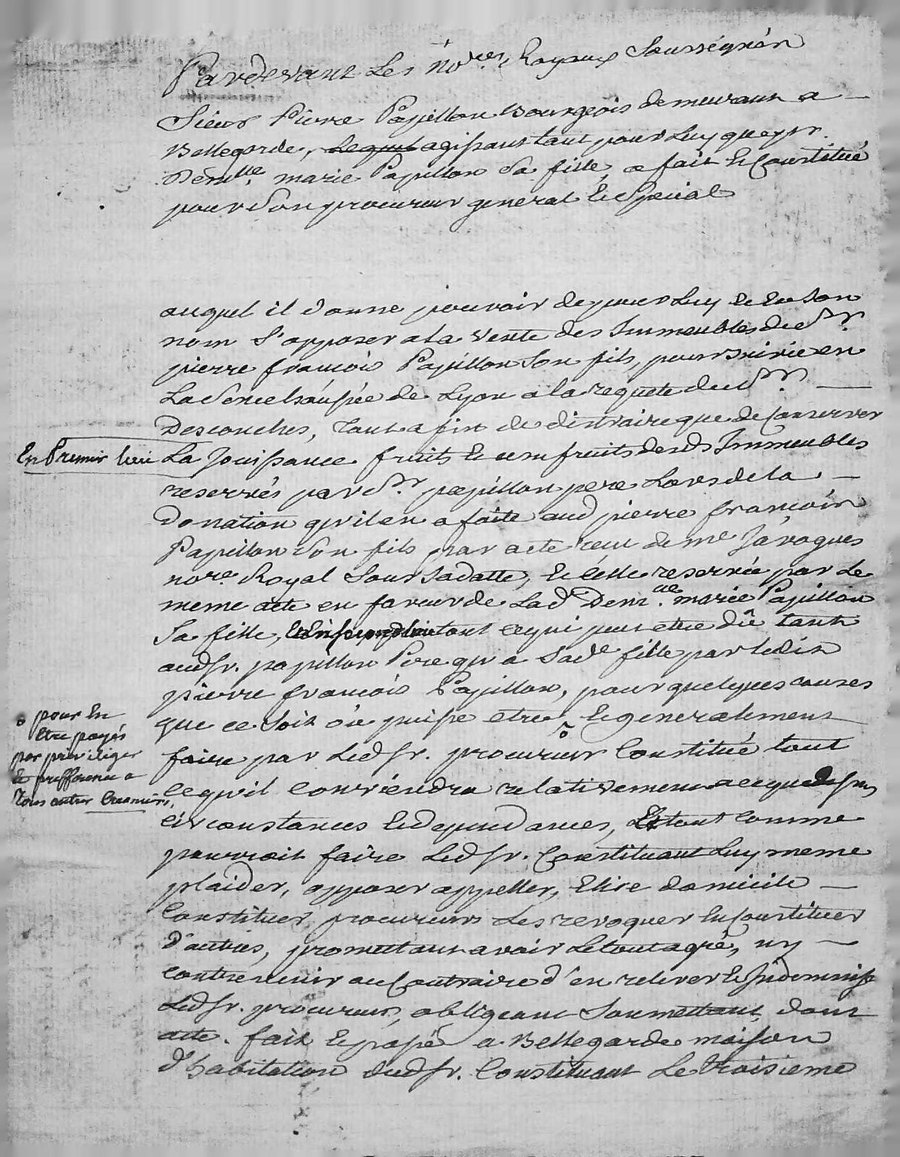 Pardevant Les No.res Royaux Soussignés
Sieur Pierre Papillon Bourgeois demeurant a
Bellegarde, Lequel agissant tant pour Luy que pr.
Demlle. marie Papillon Sa fille, a fait et Constitué
pour Son procureur general et Special
auquel il donne pouvoir de pour Luy et en Son
nom S'opposer a La Vente des Immeubles de Sr.
pierre francois Papillon Son fils, poursuivie en
La Sénéchaussée de Lyon a la requete de Sr.
Descouches, tant afin de distraire que de Conserver
En Premier lieu
La Jouissance fruits et usufruits desd. Immeubles
reservés par Sr. papillon pere Lors de la
donation qu'il en a faite aud. pierre francois
Papillon Son fils par acte recu de me Javogues
no.re Royal Sous Sa datte, et celle reservée par Le
meme acte en faveur de Lad. Demlle. marie Papillon
Sa fille, tout ce qui peut etre dû tant
aud. Sr. papillon Pere qu'a Sad. fille par ledit
pierre francois Papillon, pour quelques causes
que ce Soit ou puisse etre, et generalement
pour En
Etre payés
par privilege
Et prefference a
Tous autres Creanciers,
faire par Led. Sr. procureur Constitué tout
Ce qu'il Conviendra relativement a ce que dessus
Circonstances et dependances, Et tout Comme
pourroit faire Led. Sr. Constituant Luy meme
plaider, opposer appeller, Elire domicile
Constituer procureurs Les revoquer En Constituer
d'autres, promettant avoir Le tout agré, ny
Contrevenir au Contraire d'en relever et Indemniser
Led. Sr. procureur, obligeant Soumettant, dont
acte. fait et passé a Bellegarde maison
d'habitation dud. Sr. Constituant Le troisieme